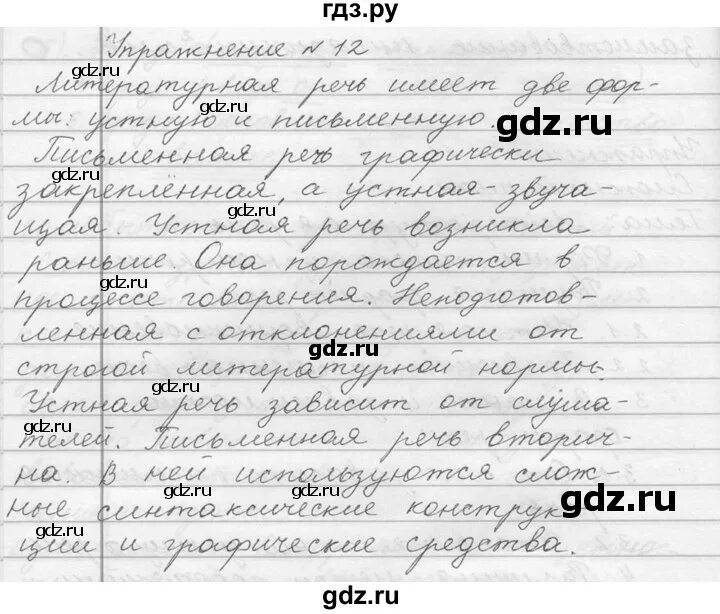 гдз.ру
Упражнение № 12
Литературная речь имеет две фор-
мы: устную и письменную.
gdz.ru
gdz.ru
gdz.ru
Письменная речь графически
закреплённая, а устная - звуча-
gdz.ru
щая. Устная речь возникла
раньше. Она порождается в
gdz.ru
gdz.ru
процессе говорения. Неподготов-
ленная с отклонениями от
gdz.ru
строгой литературной нормы.
gdz.ru
gdz.ru
Устная речь зависит от слуша-
телей. Письменная речь вторич-
gdz.ru
на. В ней используются слож-
gdz.ru
gdz.ru
ные синтаксические конструк-
gdz.ru
ции и графические средства.